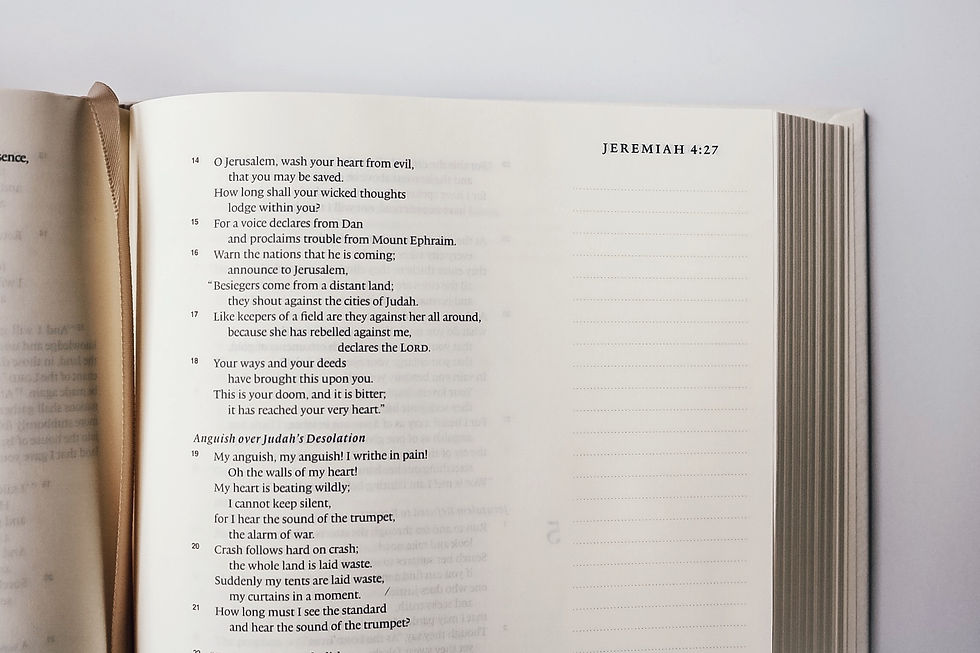 sence,
JEREMIAH 4:27
14 O Jerusalem, wash your heart from evil,
that you may be saved.
How long shall your wicked thoughts
lodge within you?
15 For a voice declares from Dan
and proclaims trouble from Mount Ephraim.
16 Warn the nations that he is coming;
announce to Jerusalem,
“Besiegers come from a distant land;
they shout against the cities of Judah.
17 Like keepers of a field are they against her all around,
because she has rebelled against me,
declares the LORD.
18 Your ways and your deeds
have brought this upon you.
This is your doom, and it is bitter;
it has reached your very heart.”
Anguish over Judah's Desolation
19 My anguish, my anguish! I writhe in pain!
Oh the walls of my heart!
My heart is beating wildly;
I cannot keep silent,
for I hear the sound of the trumpet,
the alarm of war.
20 Crash follows hard on crash;
the whole land is laid waste.
Suddenly my tents are laid waste,
my curtains in a moment.
21 How long must I see the standard
and hear the sound of the trumpet?